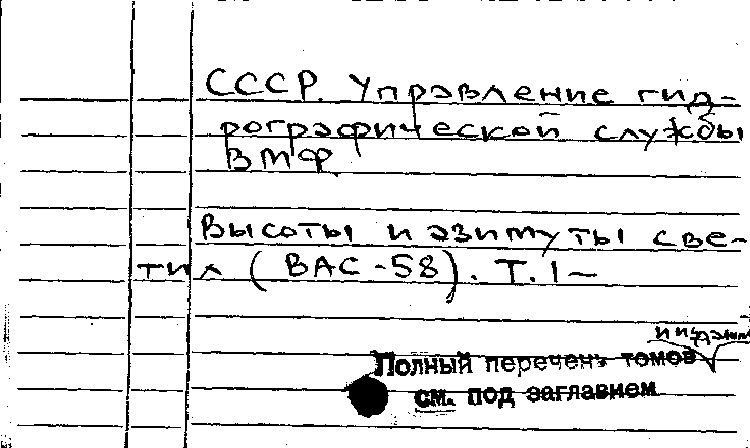 СССР. Управление гид-
рографической службы
ВМФ.
Высоты и азимуты све-
тил (ВАС-58). Т.1–
и издания
Полный перечень томов
см. под заглавием